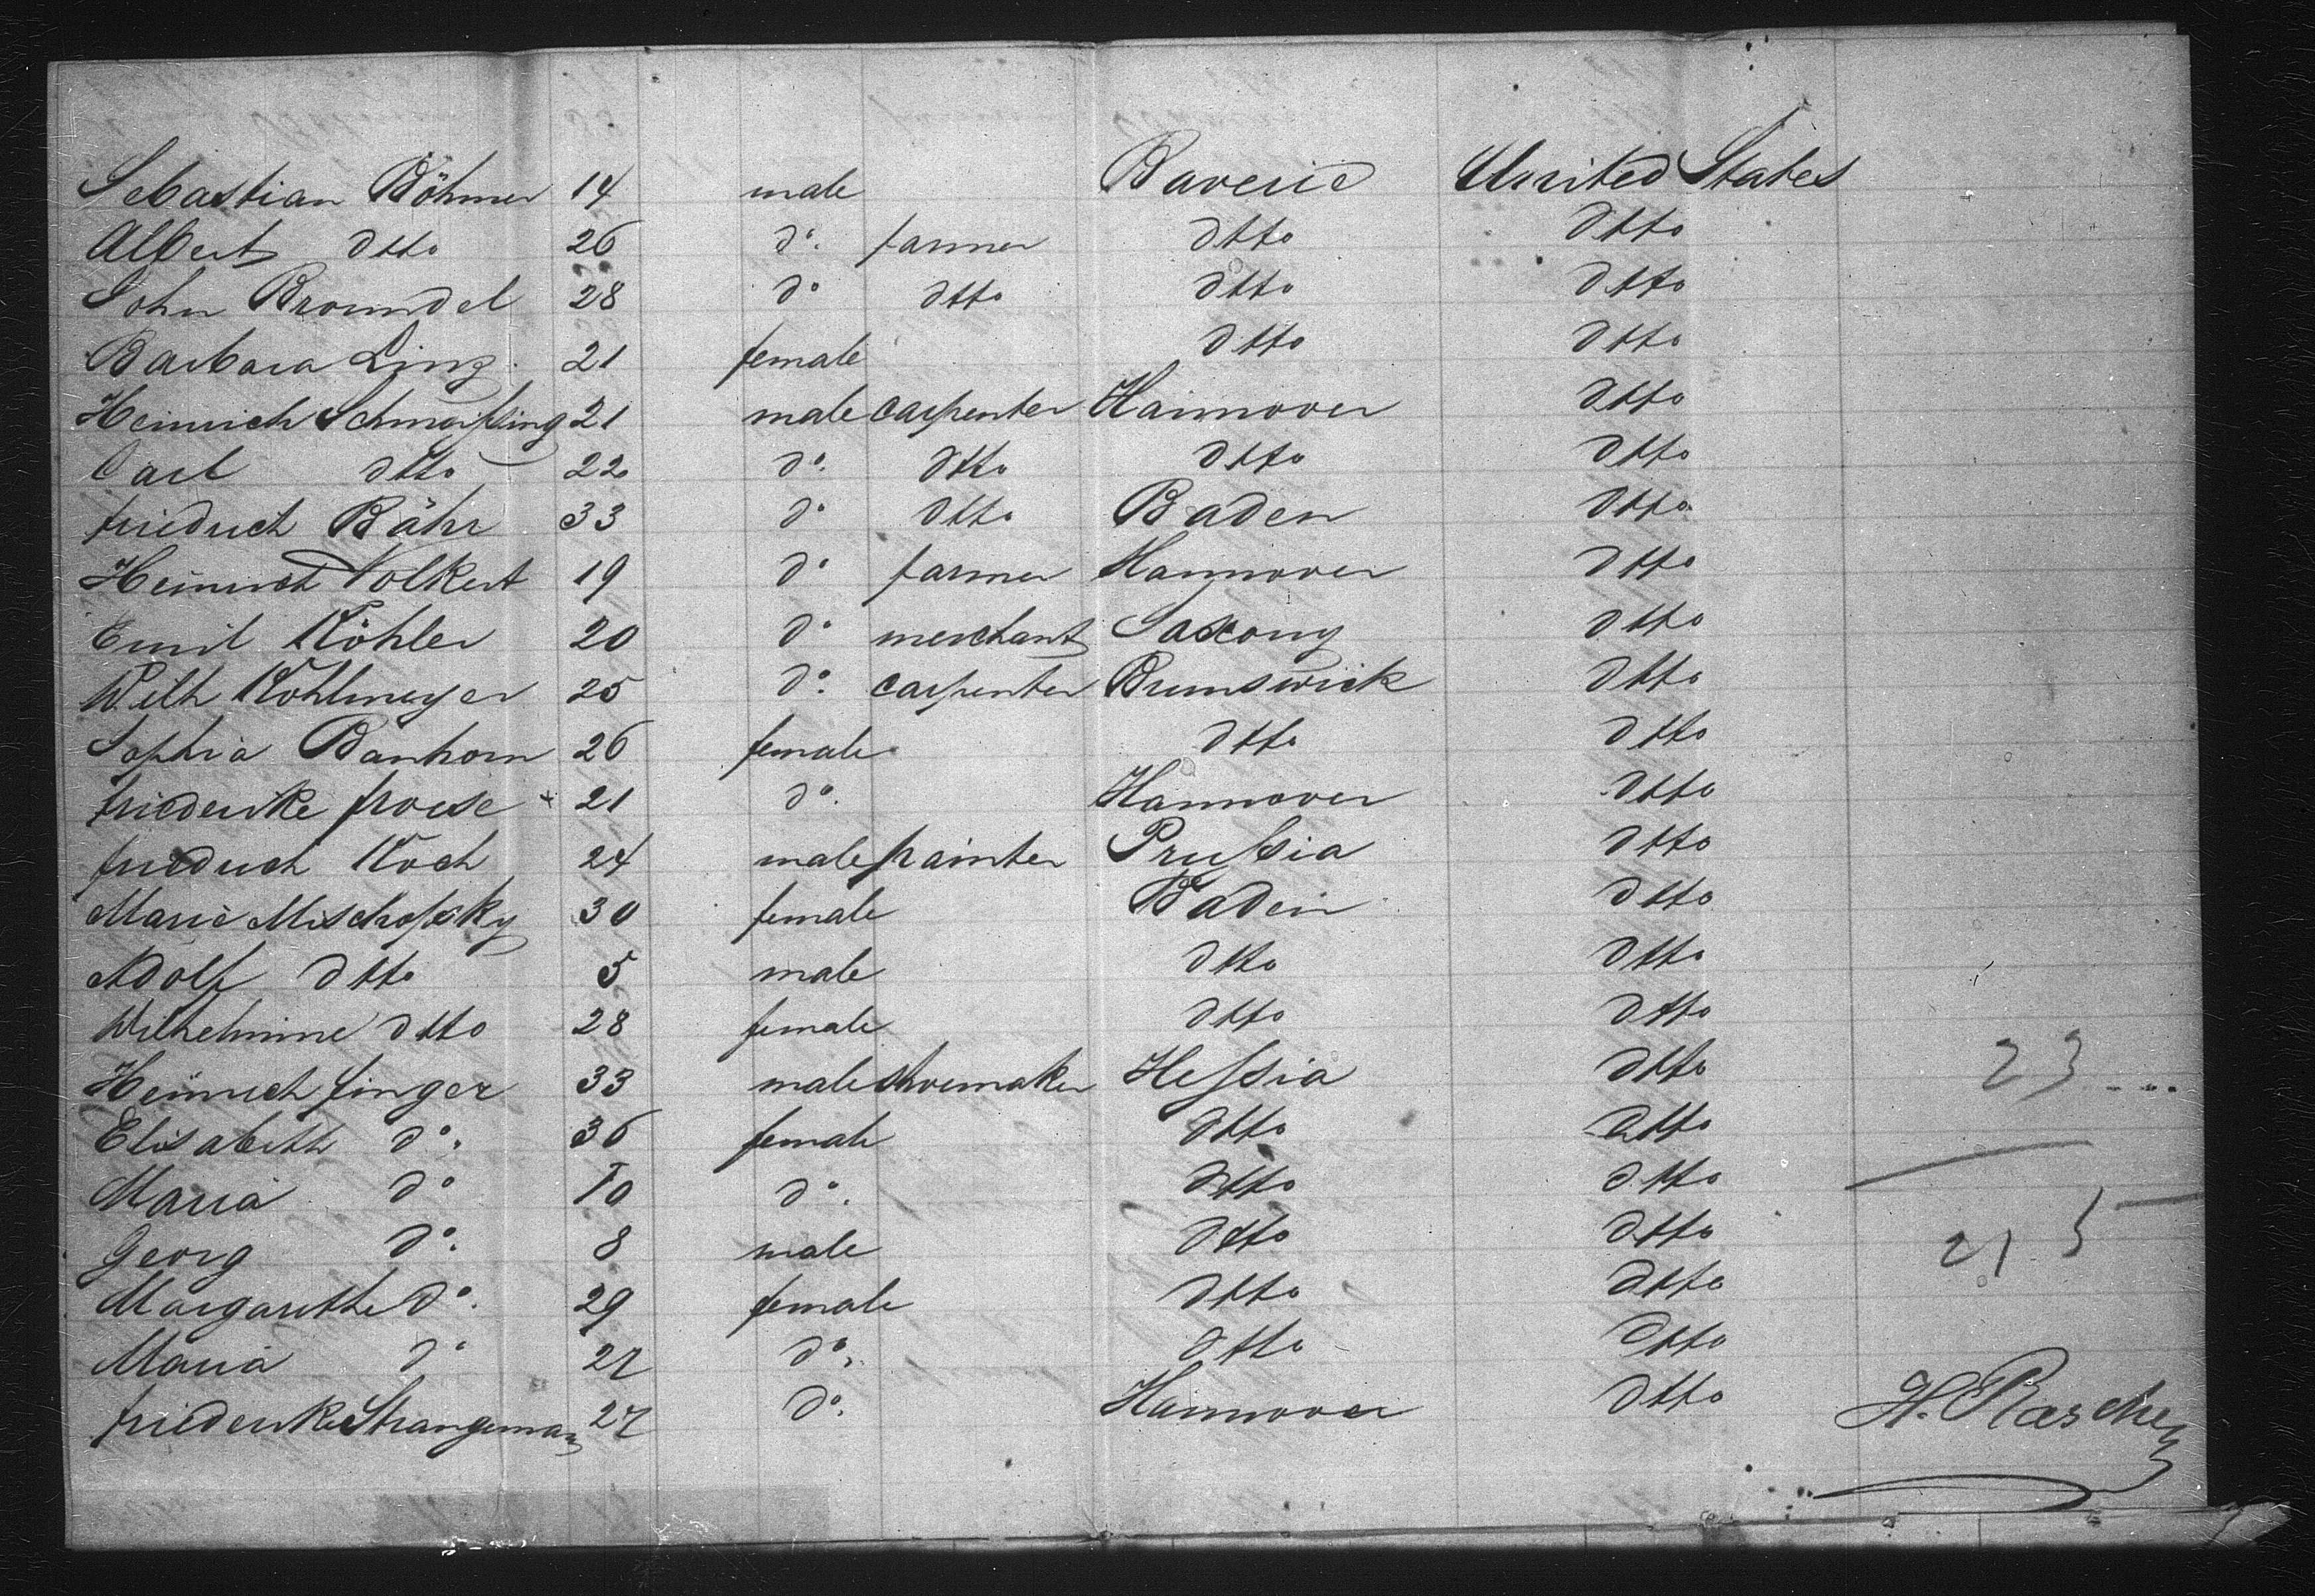 Sebastian Böhmer 14 male Baveria United States
Albert dtto 26 do. farmer dtto dtto
John Broundel 28 do dtto dtto dtto
Barbara Linz 21 female dtto dtto
Heinrich Schmeißing 21 male carpenter Hannover dtto
Carl dtto 22 do. dtto dtto dtto
friedrich Bähr 33 do dtto Baden dtto
Heinrich Volkert 19 do farmer Hannover dtto
Emil Köhler 20 do merchant Saxony dtto
Wilh Kohlmeyer 25 do. carpenter Brunswick dtto
Sophia Banhorn 26 female dtto dtto
friederike froese 21 do. Hannover dtto
friedrich Koch 24 male painter Prußia dtto
Marie 30 female Baden dtto
Adolf dtto 5 male dtto dtto
Wilhelmine dtto 28 female dtto dtto
Heinrich finger 33 male shoemaker Heßia dtto 23
Elisabeth do. 36 female dtto dtto
Maria do 10 do. dtto dtto
Georg do. 8 male dtto dtto 215
Margarethe do. 29 female dtto dtto
Maria do 27 do. dtto dtto
friederike Strangeman 27 do. Hannover dtto H. Raschen